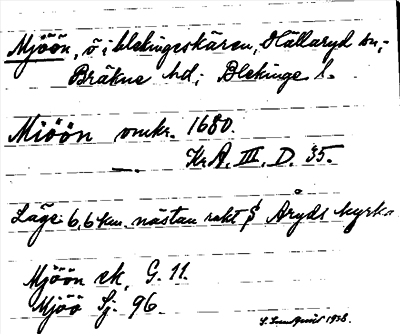 Mjöön, ö i blekingeskären, Hällaryd sn;
Bräkne hd; Blekinge l.
Miöön omkr. 1680.
Kr.A. III. D. 35.
Läge: 6,6 km. nästan rakt S Åryds kyrka
Mjöön ek. G. 11.
Mjöö Sj. 96.
1928.